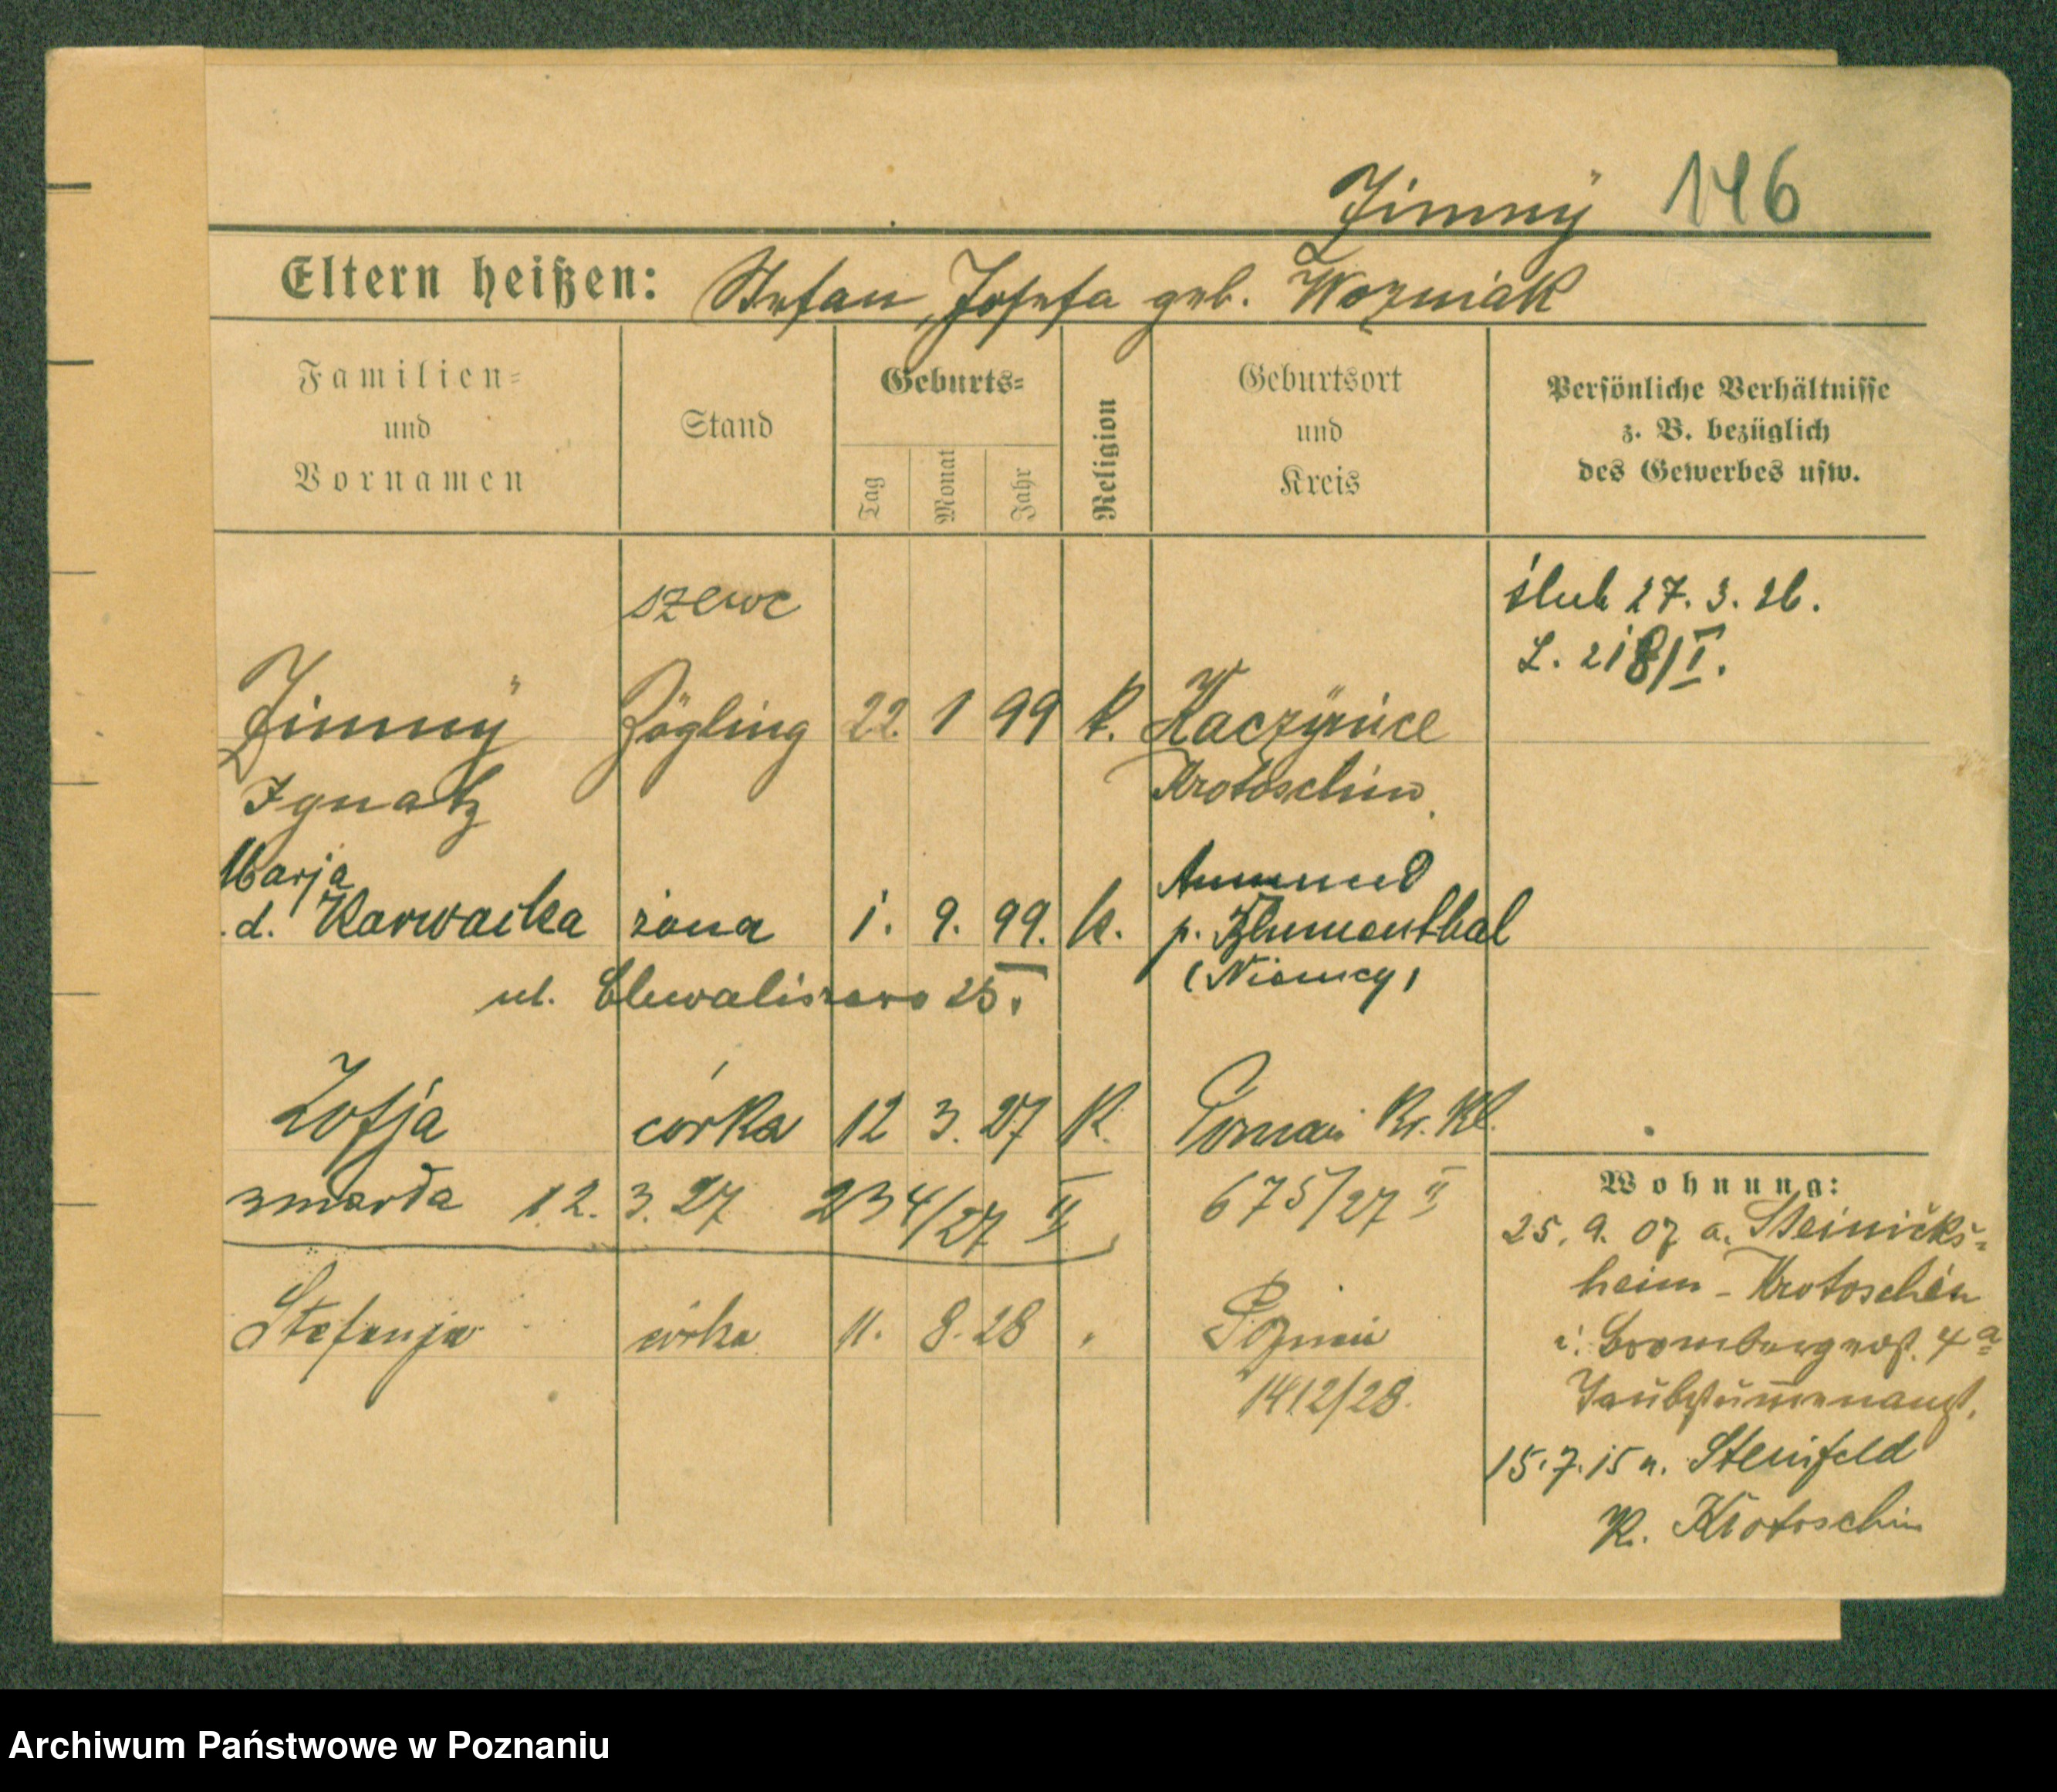 Zimny 146
Eltern heißen: Stefan, Josefa geb. Wozniak
Familien=
und
Vornamen
Stand
Geburts=
Tag
Monat
Jahr
Religion
Geburtsort
und
Kreis
Persönliche Verhältnisse
z. B. bezüglich
des Gewerbes usw.
szewc
ślub 27. 3. 26.
L. 218/I.
Zimny Zögling 22. 1 99 k.
Ignatz Krotoschin
Marja
d. Karwacka żona 1. 9. 99. k. p. Blumenthal
(Niemcy)
ul. Chwaliszewo 25.
Zofja córka 12 3. 27 K. Poznań
zmarła 12. 3. 27 234/27 II 675/27 II
Stefanja córka 11. 8. 28 " Poznań
1412/28.
Wohnung:
25. 9. 07 a. Steinicks=
heim - Krotoschin
i. Brombergerst. 4a
Taubstummenanst.
15. 7. 15 n. Steinfeld
K. Krotoschin
Archiwum Państwowe w Poznaniu